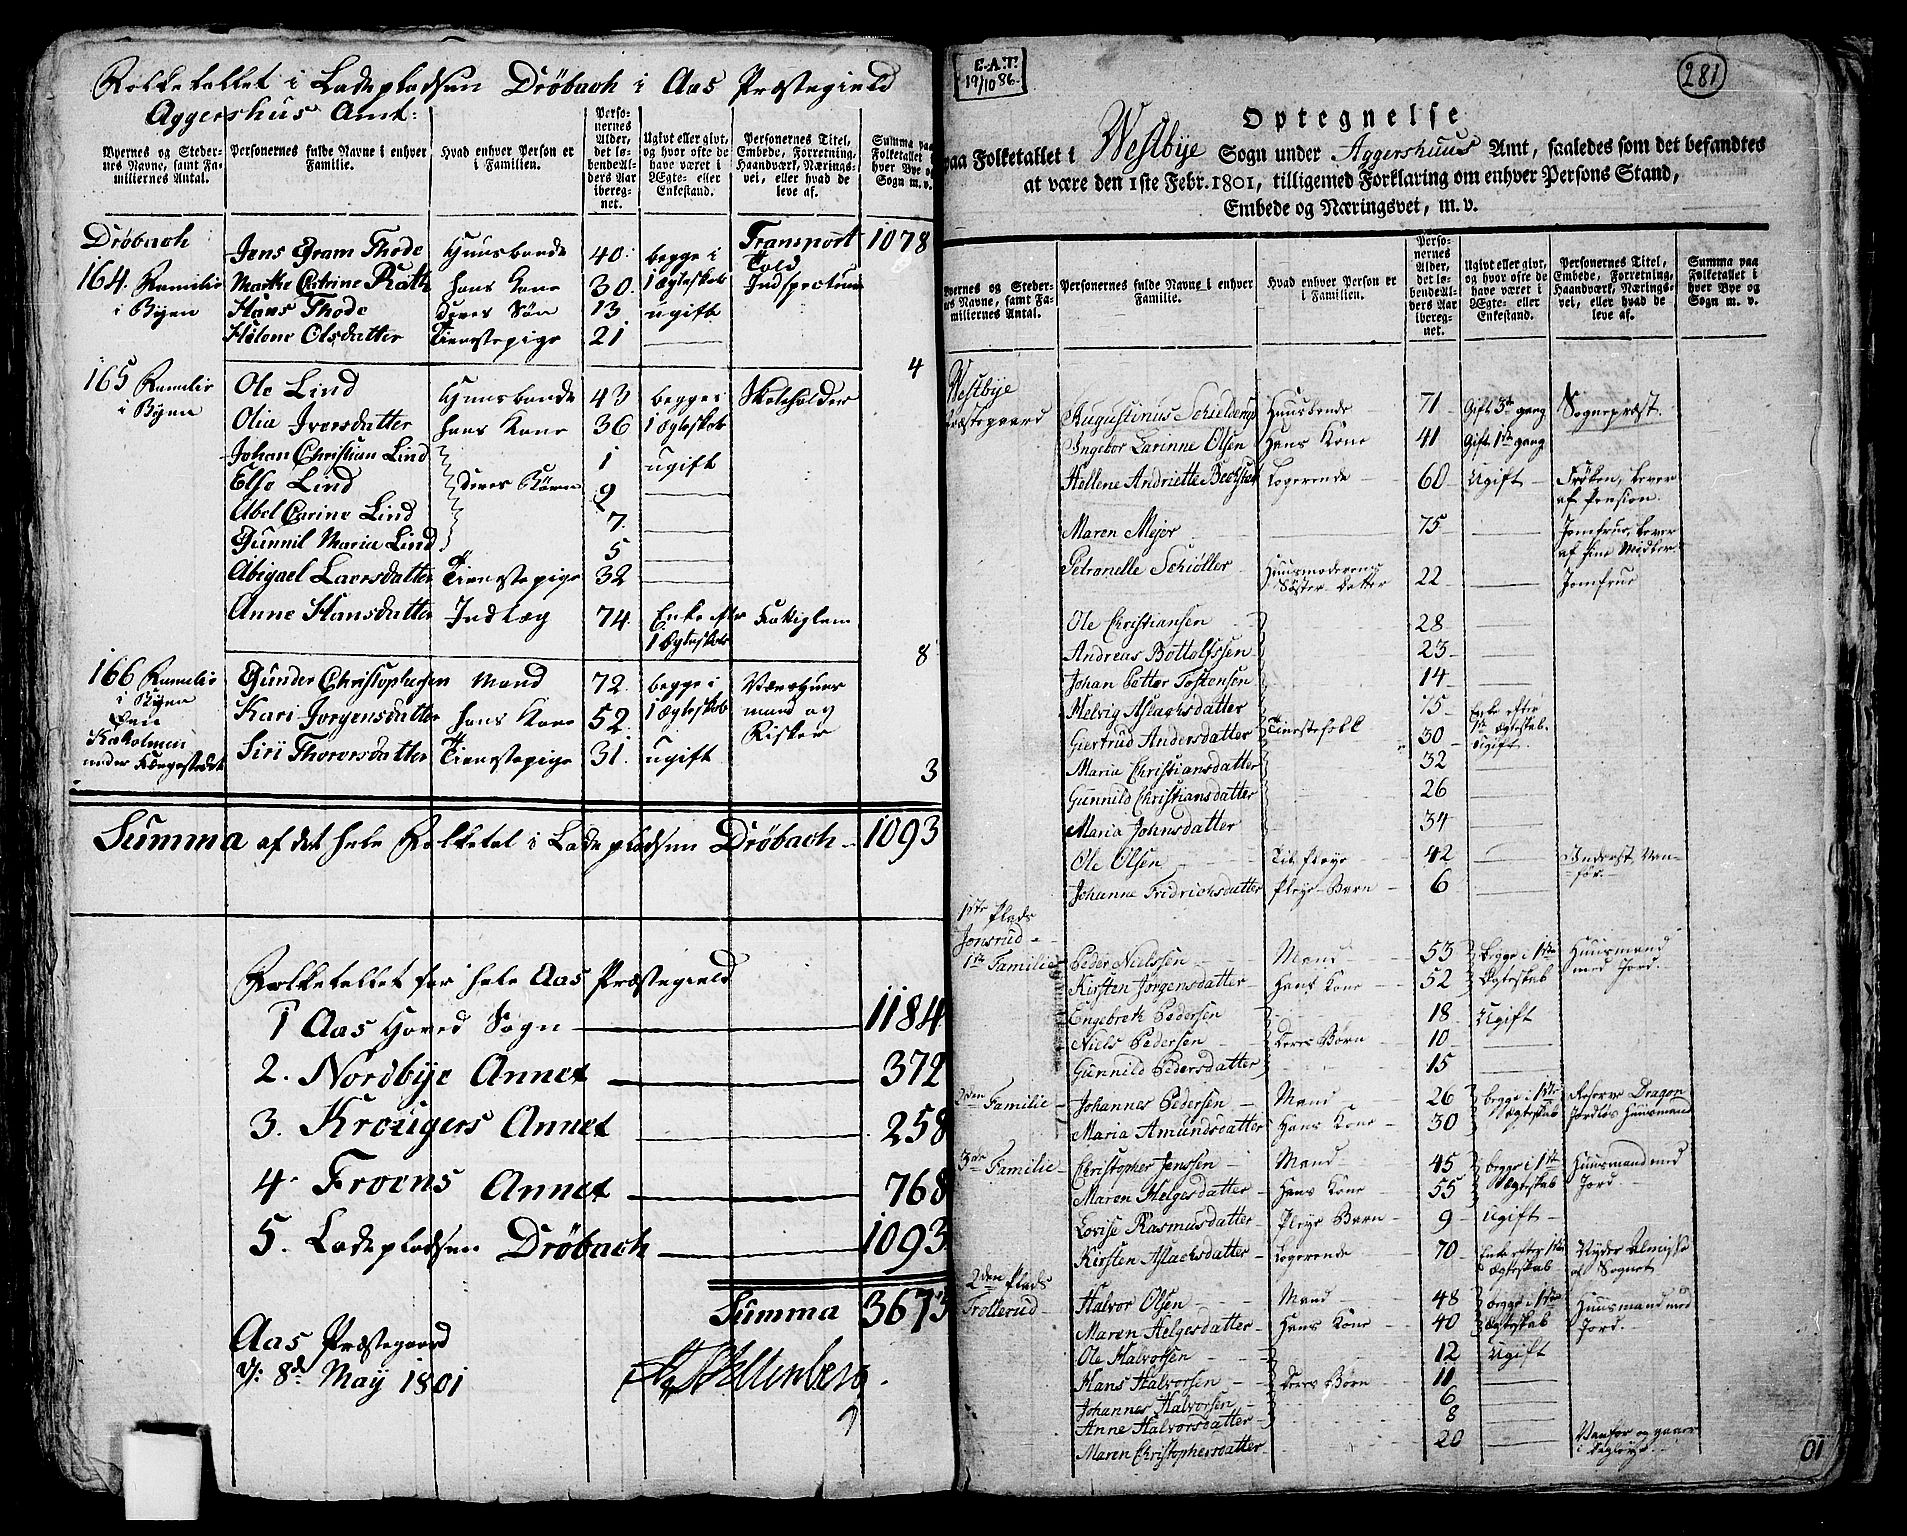 Folketallet i Ladepladsen Drøbach i Aas Præstegield
Aggershus Amt:
Byernes og Stedernes Navne, samt Familiernes Antal.
Personernes fulde Navne i enhver Familie.
Hvad enhver Person er i Familien.
Personernes Alder, det løbende Alders Aar iberegnet.
Ugivt eller givt, og hvor ofte de have været i Ægte- eller Enkestand.
Personernes Titel, Embede, Forretning, Haandværk, Næringsvei, eller hvad de leve af.
Summa paa Folketallet i hver Bye og Sogn m. v.
Drøbach
Transport 1078
164 Familie i Byen
Jens Gram Thode Huusbonde 40 begge i Told
Marthe Catrine Rath hans Kone 30 1 Ægteskab Inspecteur
Hans Thode deres Søn 13 ugift
Helene Olsdatter Tienestepige 21 —
4
165 Familie i Byen
Ole Lind Huusbonde 43 begge i Skoleholder
Olia Iversdatter hans Kone 36 1 Ægteskab
Johan Christian Lind 1 ugift
Else Lind deres Børn 9 —
Abel Carine Lind 7 —
Gunnil Maria Lind 5 —
Abigael Larsdatter Tienestepige 32 —
Anne Hansdatter Indlæg 74 Enke efter 1 Ægteskab
8
166 Familie i Byen
Gunder Christophersen Mand 72 begge i
Kari Jorgensdatter hans Kone 52 1 Ægteskab mand og Fisker
Siri Thorersdatter Tienestepige 31 ugift
3
Summa af det hele Folketal i Ladepladsen Drøbach 1093
Folketallet for hele Aas Præstegield
1 Aas Hoved Sogn — 1184
2. Nordbye Annex — 372
3. Krougers Annex — 258
4. Froens Annex — 768
5. Ladepladsen Drøbach — 1093
Summa 3673
Aas Præstegaard
d: 8de May 1801
E.A.T.
19/10 86
281
Optegnelse
paa Folketallet i Westbye Sogn under Aggershuus Amt, saaledes som det befandtes
at være den 1ste Febr. 1801, tilligemed Forklaring om enhver Persons Stand,
Embede og Næringsvei, m. v.
Byernes og Stedernes Navne, samt Familiernes Antal.
Personernes fulde Navne i enhver Familie.
Hvad enhver Person er i Familien.
Personernes Alder, det løbende Alders Aar iberegnet.
Ugivt eller givt, og hvor ofte de have været i Ægte- eller Enkestand.
Personernes Titel, Embede, Forretning, Haandværk, Næringsvei, eller hvad de leve af.
Summa paa Folketallet i hver Bye og Sogn m. v.
Westbye
Præstegaard
Augustinus Schielderup Huusbonde 71 Gift 3de gang Sognepræst.
Ingebor Larinne Olsen Hans Kone 41 Gift 1ste gang
Hellene Andriette Logerende 60 Ugift Frøken, lever af Pension.
Maren Mejer 75 — Jomfrue, lever af sine Midler.
Petronelle Schiøller Huusmoderens Søster Datter 22 — Jomfrue
Ole Christiansen 28 —
Andreas Bottolfssen 23 —
Johan Petter Tostensen 14 —
Helvig Aslachsdatter 75 Enke efter 1ste Ægteskab.
Giertrud Andersdatter Tienestefolk 30 Ugift.
Maria Christiansdatter 32 —
Gunnild Christiansdatter 26 —
Maria Johnsdatter 34 —
Ole Olsen Til Pleye 42 — Inderst, Vanfør.
Johanne Fridrichsdatter Pleye-Barn 6 —
1ste Plads
Jonsrud
1ste Familie Peder Nielssen Mand 53 Begge i 1ste Huusmand
Kirsten Jørgensdatter Hans Kone 52 Ægteskab med Jord.
Engebreth Pedersen 18 Ugift
Niels Pedersen Deres Børn 10 —
Gunnild Pedersdatter 15 —
2den Familie Johannes Pedersen Mand 26 begge i 1ste Reserve Dragon
Maria Amundsdatter Hans Kone 30 Ægteskab Jordløs Huusmand
3die Familie Christopher Jenssen Mand 45 begge i 1ste Huusmand med
Maren Helgesdatter Hans Kone 55 Ægteskab Jord.
Lovise Rasmusdatter Pleye Barn 9 Ugift
Kirsten Aslachsdatter Logerende 70 Enke efter 1ste Ægteskab Nyder Almisse af Sognet
2den Plads
Trollerud
Halvor Olsen Mand 48 begge i 1ste Huusmand med
Maren Helgesdatter Hans Kone 40 Ægteskab Jord.
Ole Halvorsen 12 Ugift
Hans Halvorsen Deres Børn 11 —
Johannes Halvorsen 6
Anne Halvorsdatter 8 —
Maren Christophersdatter 20 — Vanfør og gaaer i
01